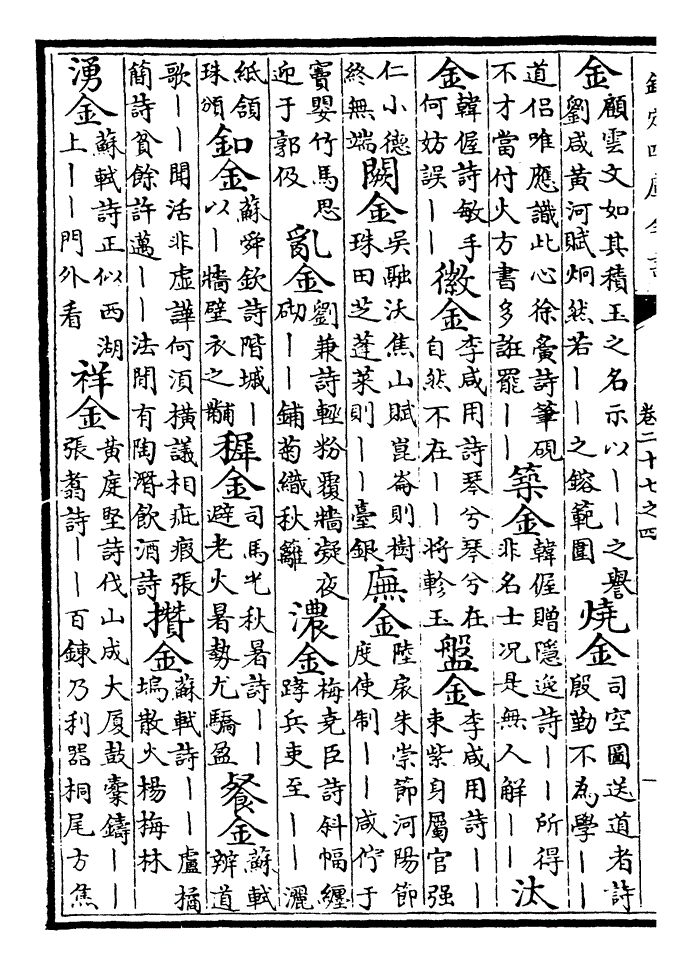 欽定四庫全書
卷二十七之四
一
金
顧雲文如其積玉之名示以丨丨之譽
劉咸黃河賦炯然若丨丨之鎔範圍
燒金
司空圖送道者詩
殷勤不為學丨丨
道侶唯應識此心徐夤詩筆硯
不才當付火方書多誑罷丨丨
築金
韓偓贈隱逸詩丨丨所得
非名士况是無人解丨丨
汰
金
韓偓詩敏手
何妨誤丨丨
徽金
李咸用詩琴兮琴兮在
自然不在丨丨將軫玉
盤金
李咸用詩丨丨
束紫身屬官强
仁小德
終無端
闕金
吳融沃焦山賦崑崙則樹
珠田芝蓬萊則丨丨臺銀
廡金
陸扆朱崇節河陽節
度使制丨丨咸佇于
竇嬰竹馬思
迎于郭伋
亂金
劉兼詩輕粉覆牆凝夜
砌丨丨鋪菊織秋籬
濃金
梅堯臣詩斜幅纏
兵吏至丨丨灑
紙領
珠頒
釦金
蘇舜欽詩階墄丨
以丨牆壁衣之黼
稺金
司馬光秋暑詩丨丨
避老火暑勢尤驕盈
餐金
蘇軾
辨道
歌丨丨聞活非虛譁何須橫議相疵瑕張
簡詩貧餘許邁丨丨法閒有陶潛飲酒詩
攢金
蘇軾詩丨丨盧橘
塢散火楊梅林
湧金
蘇軾詩正似西湖
上丨丨門外看
祥金
黃庭堅詩伐山成大厦鼓橐鑄丨丨
張翥詩丨丨百鍊乃利器桐尾方焦